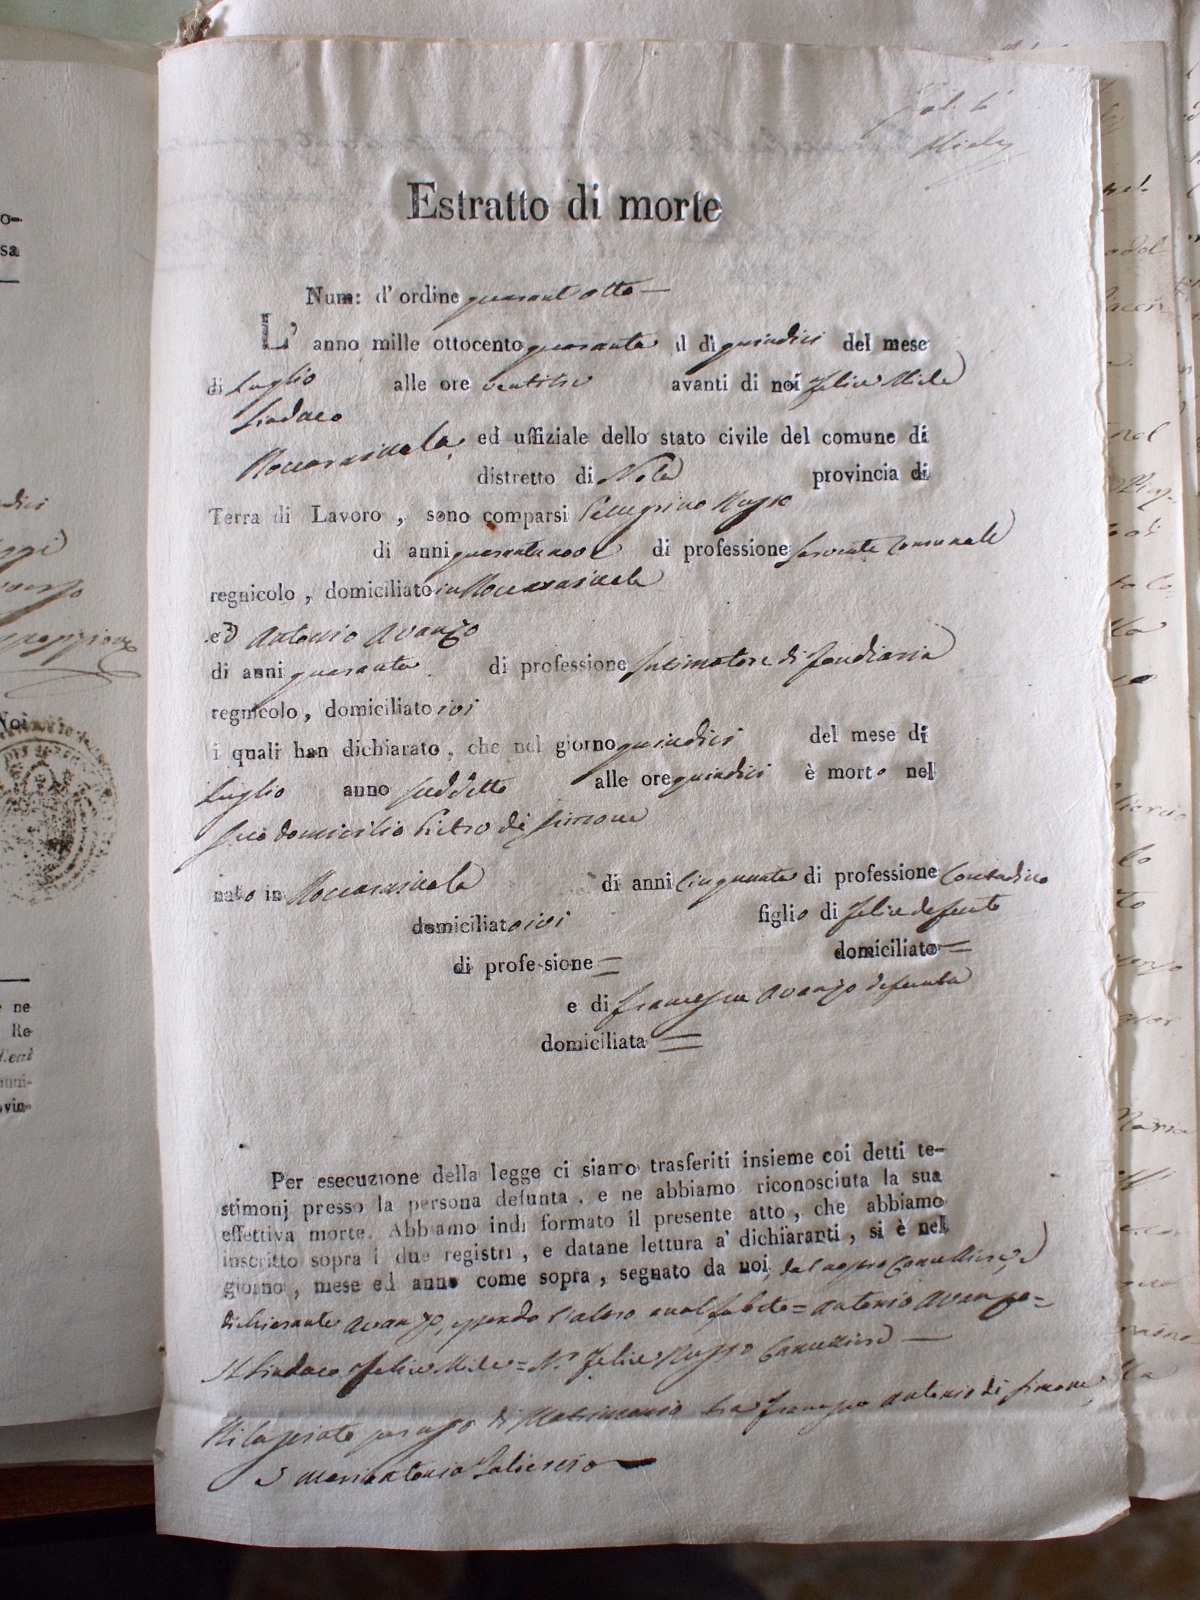 Estratto di morte
Num: d'ordine quarant'otto
L' anno mille ottocento quaranta il di quindici del mese
di Luglio alle ore ventitre avanti di noi Felice Miele
Sindaco
Roccarainola ed uffiziale dello stato civile del comune di
distretto di Nola provincia di
Terra di Lavoro, sono comparsi Pellegrino Russo
di anni quarantanove di professione servente comunale
regnicolo, domiciliato in Roccarainola
ed Antonio Avanzo
di anni quaranta di professione intimatore di fondiaria
regnicolo, domiciliato ivi
i quali han dichiarato, che nel giorno quindici del mese di
Luglio anno suddetto alle ore quindici è morto nel
suo domicilio Pietro di Simone
nato in Roccarainola di anni cinquanta di professione Contadino
domiciliato ivi figlio di Felice defunto
di professione = domiciliato =
e di Francesca Avanzo defunta
domiciliata =
Per esecuzione della legge ci siamo trasferiti insieme coi detti te-
stimonj presso la persona defunta, e ne abbiamo riconosciuta la sua
effettiva morte. Abbiamo indi formato il presente atto, che abbiamo
inscritto sopra i due registri, e datane lettura a' dichiaranti, si è nel
giorno, mese ed anno come sopra, segnato da noi, dal nostro Cancelliere, e
dichiarante Avanzo, essendo l'altro analfabeto = Antonio Avanzo =
Il Sindaco Felice Miele = Felice Russo Cancelliere
Rilasciato per uso di Matrimonio tra Francesco Antonio di Simone,
e Mariantonia
o-
sa
Noi
ne
Re-
Real
ovin-